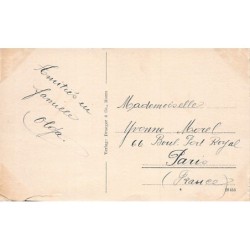 Amitiés en
famille
Olga
Mademoiselle
Yvonne Morel
66 Boul. Port Royal
Paris
(France)